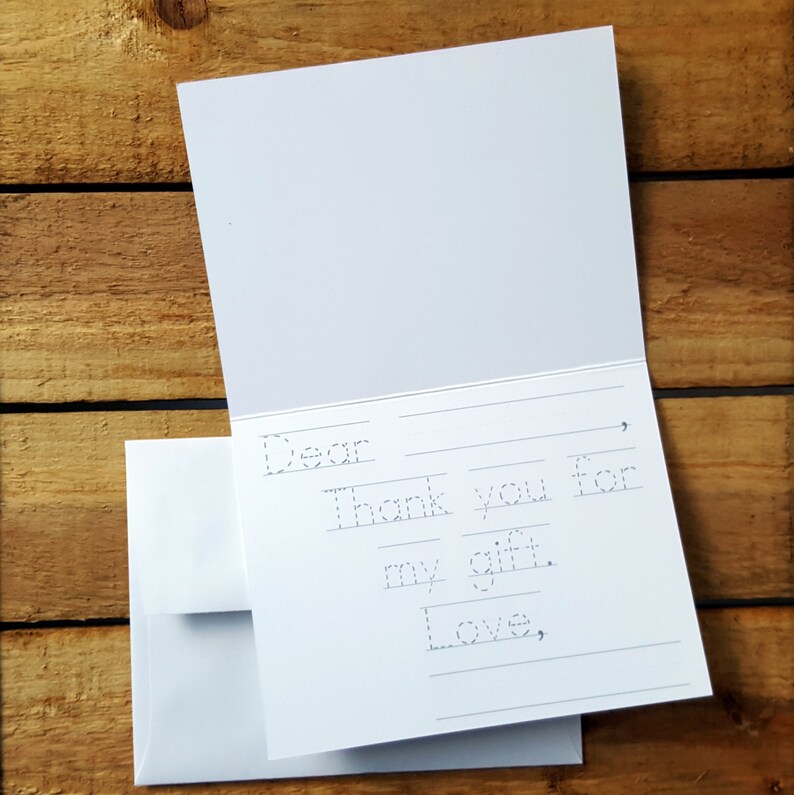 Dear ,
Thank you for
my gift.
Love,